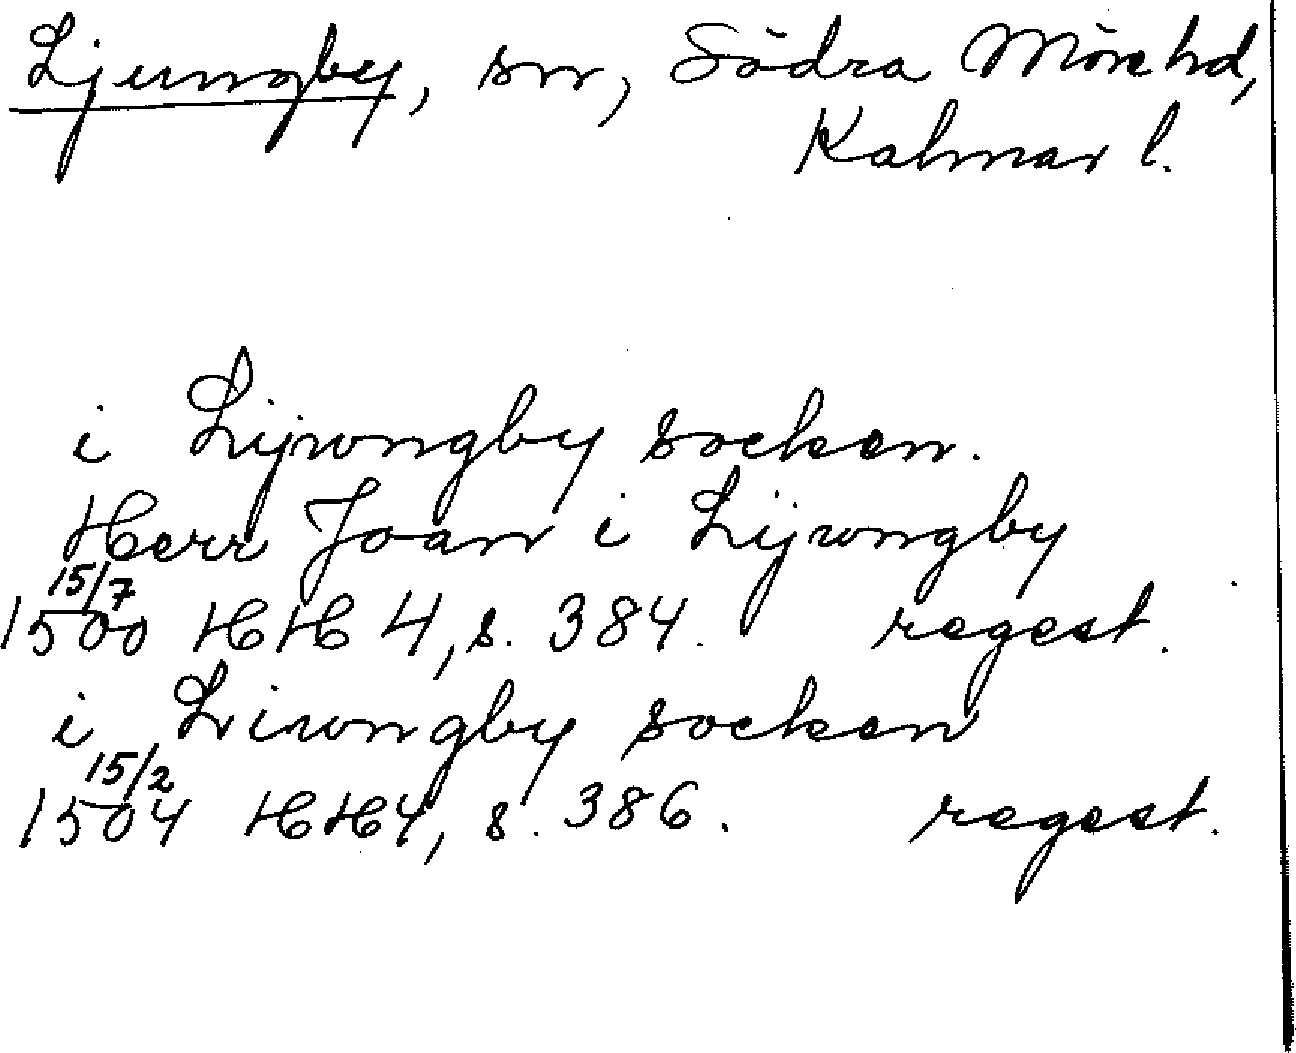 Ljungby, sn, Södra Möre hd,
Kalmar l.
i Lijwngby socken.
Herr Joan i Lijwngby
15/7
1500 HH 4, s. 384. regest.
i Liwngby socken
15/2
1504 HH 4, s. 386. regest.